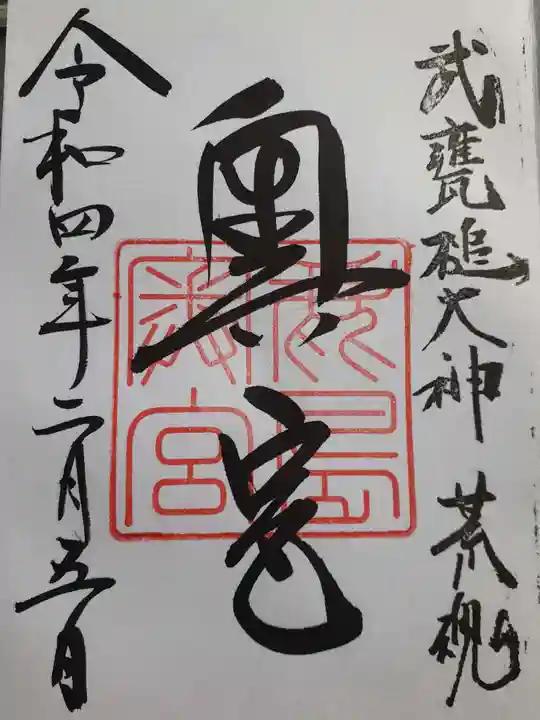 武甕槌大神 荒魂
奥宮
鹿島
神宮
令和四年二月五日